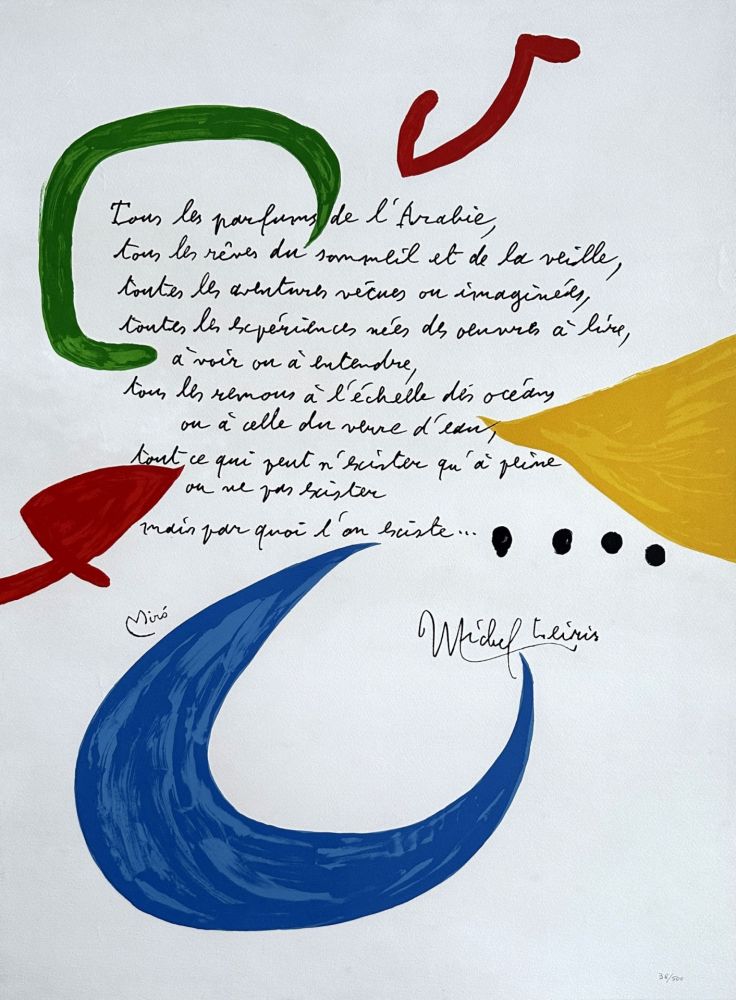 Tous les parfums de l'Arabie,
tous les rêves du sommeil et de la veille,
toutes les aventures vécues ou imaginées,
toutes les expériences nées des oeuvres à lire,
à voir ou à entendre,
tous les remous à l'échelle des océans
ou à celle du verre d'eau,
tout ce qui peut n'exister qu'à peine
ou ne pas exister
mais par quoi l'on existe...
Miró
Michel Leiris
38/500